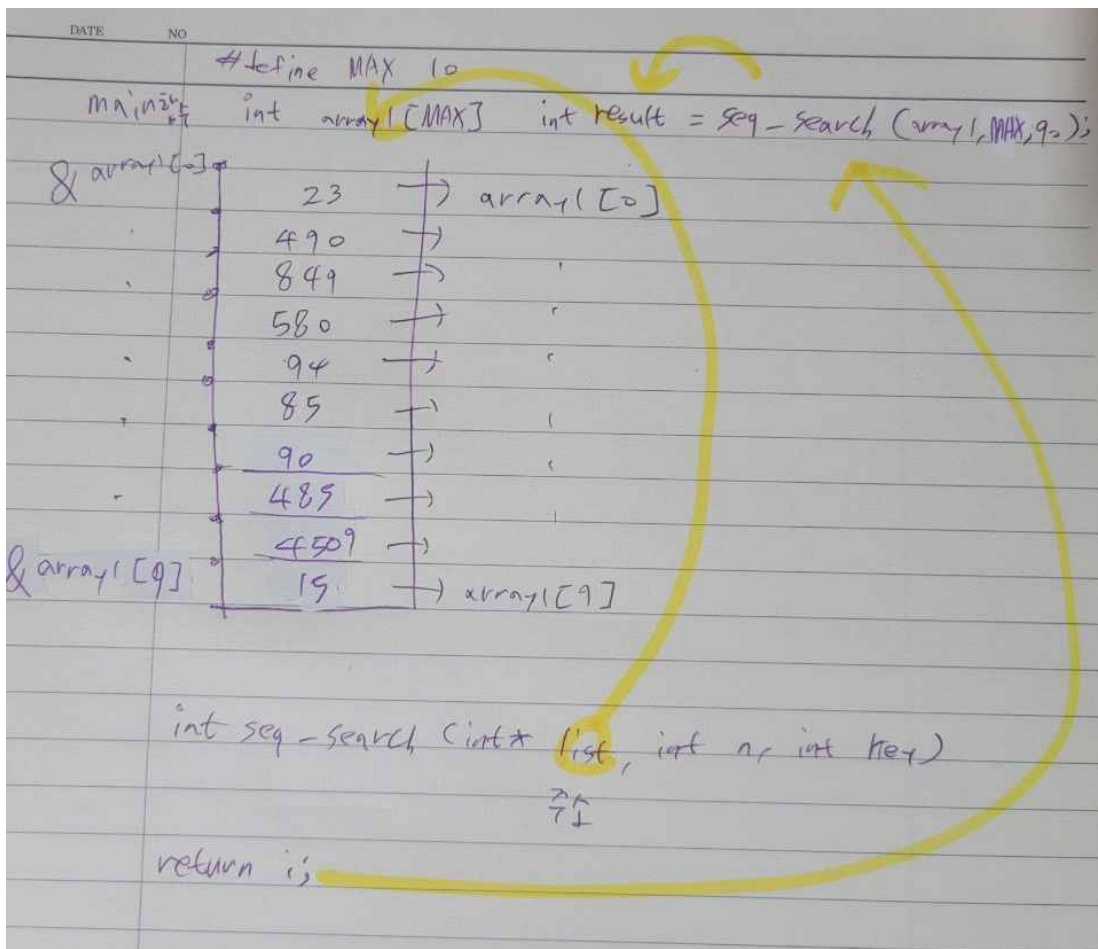 DATE NO
#define MAX 10
main함수 int array1[MAX] int result = seq_search (array1, MAX, 90);
&array1[0]
23 → array1[0]
490 →
849 →
580 →
94 →
85 →
90 →
485 →
4509 →
&array1[9] 15 → array1[9]
int seq_search (int* list, int n, int key)
주소
return i;